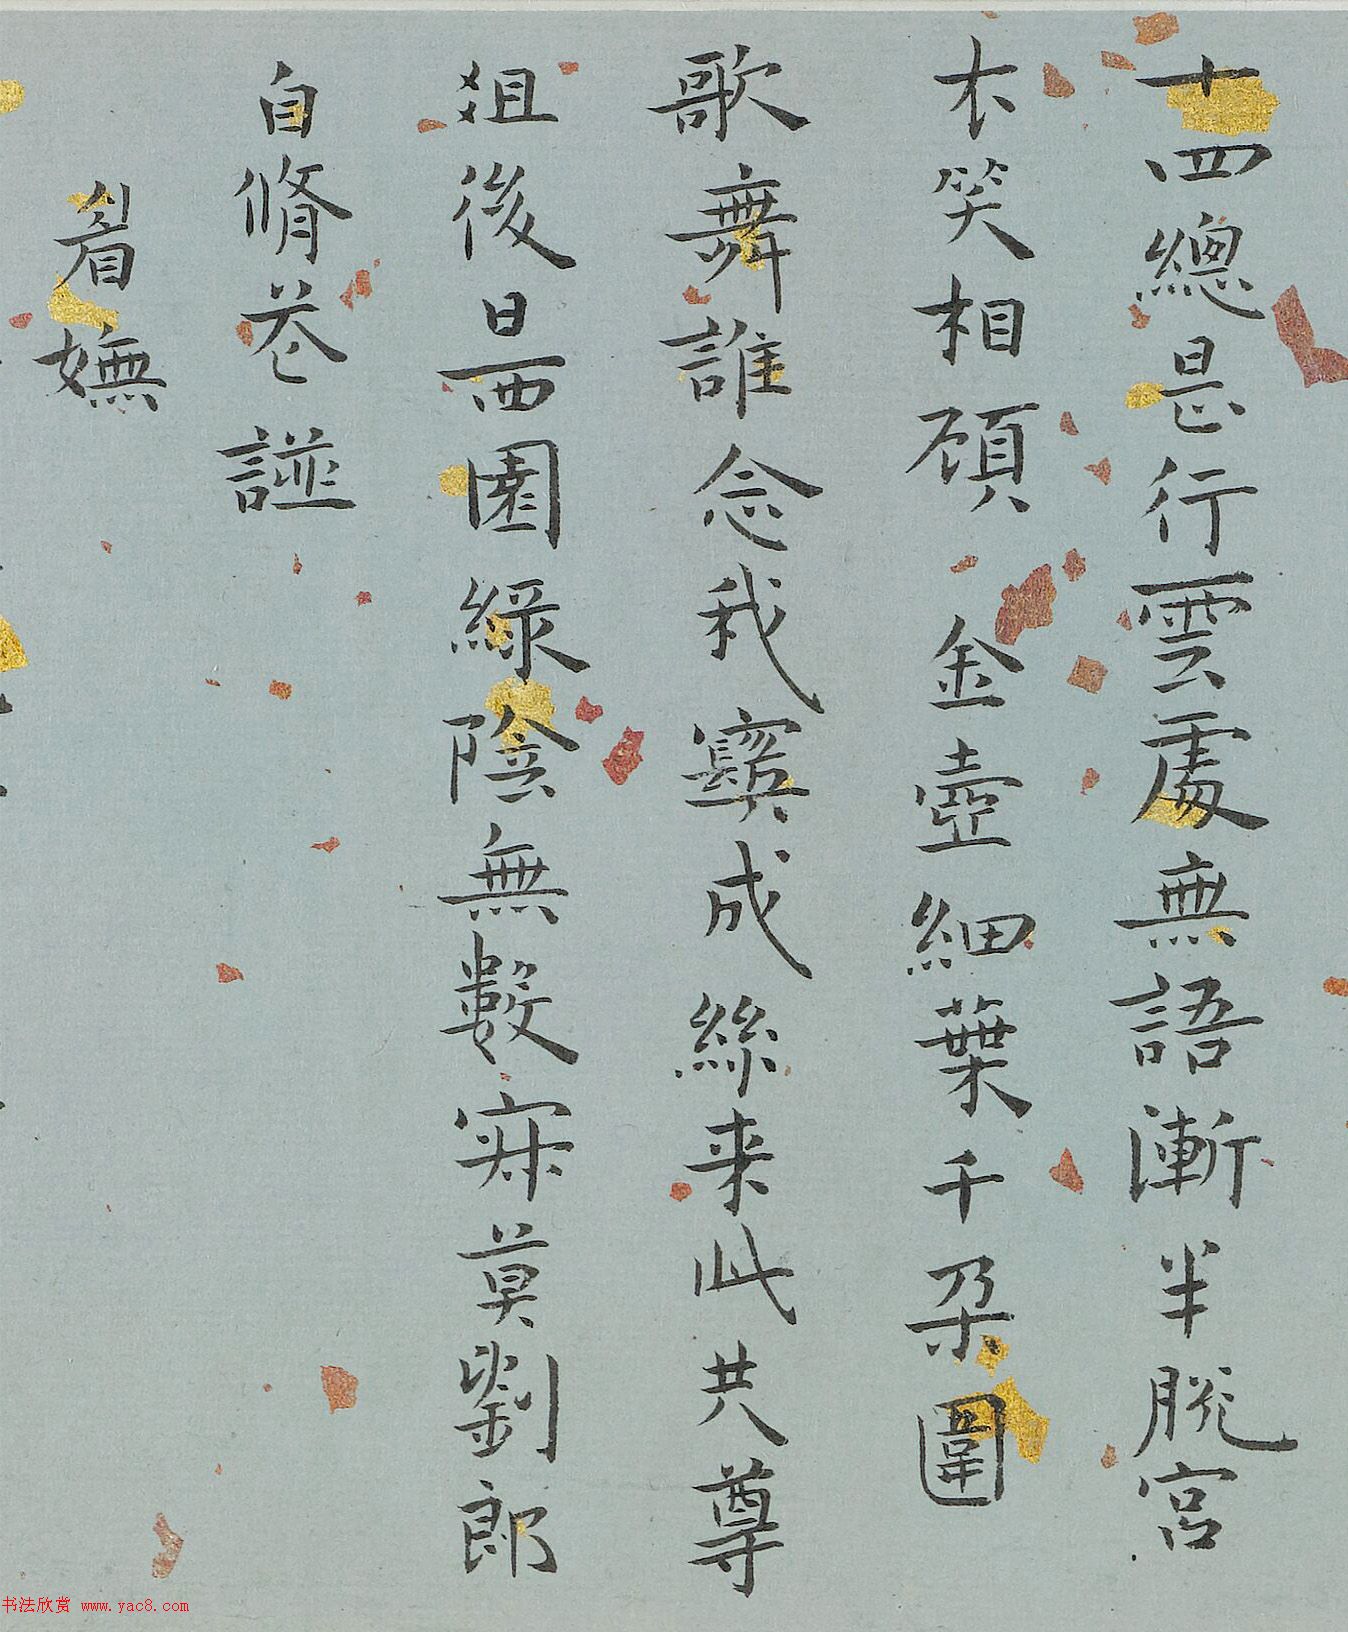 十四總是行雲處無語漸半脫宮
衣笑相顧金壺細葉千朵圍
歌舞誰念我鬢成絲来此共尊
俎後日西園綠陰無數寂莫劉郎
自脩花譜
眉嫵
书法欣赏 www.yac8.com